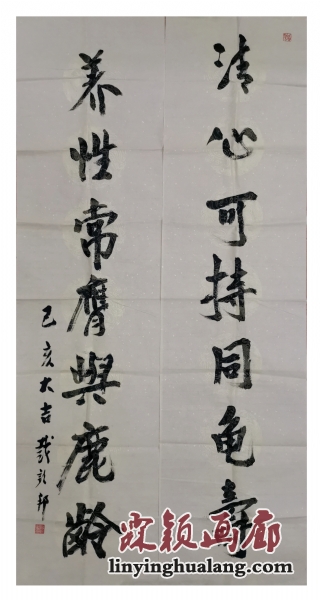 清心可持同龟寿
养性常膺與鹿龄
己亥大吉 戴敦邦
霖颖画廊
linyinghualang.com